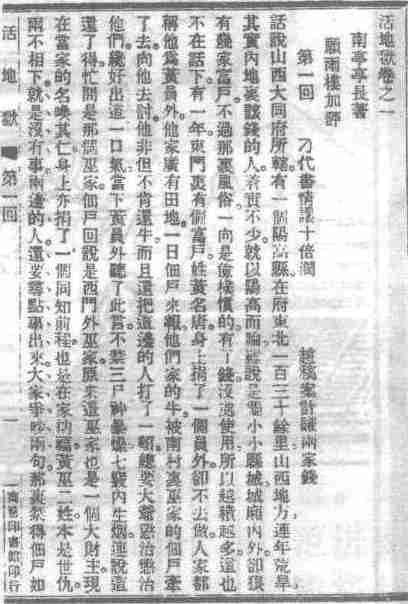 活地獄卷之一
南亭亭長著
願雨樓加評
第一回　刁代書情讓十倍潤　趙稿案計賺兩家錢
話說山西大同府所轄有一個陽高縣在府東北一百三十餘里山西地方連年荒旱
其實內地裏該錢的人着實不少就以陽高而論雖說是個小小縣城城廂內外卻很
有幾家富戶不過那裏風俗一向是儉樸慣的有了錢沒處使用所以越積越多這也
不在話下有一年東門裏有個富戶姓黃名唐身上捐了一個員外卻不去做人家都
稱他爲黃員外他家廣有田地一日佃戶來報他們家的牛被南村裏巫家的佃戶牽
了去向他去討他非但不肯還牛而且還把這邊的人打了一頓總要大爺懲治懲治
他們纔好出這一口氣當下黃員外聽了此言不禁三尸神暴燥七竅內生烟連說這
還了得忙問是那個巫家佃戶回說是西門外巫家原來這巫家也是一個大財主現
在當家的名喚其仁身上亦捐了一個同知前程也是在家納福黃巫二姓本是世仇
兩不相下就是沒有事兩邊的人還要尋點事出來大家爭吵兩句那裏禁得佃戶如
活地獄　第一回　一　商務印書館印行